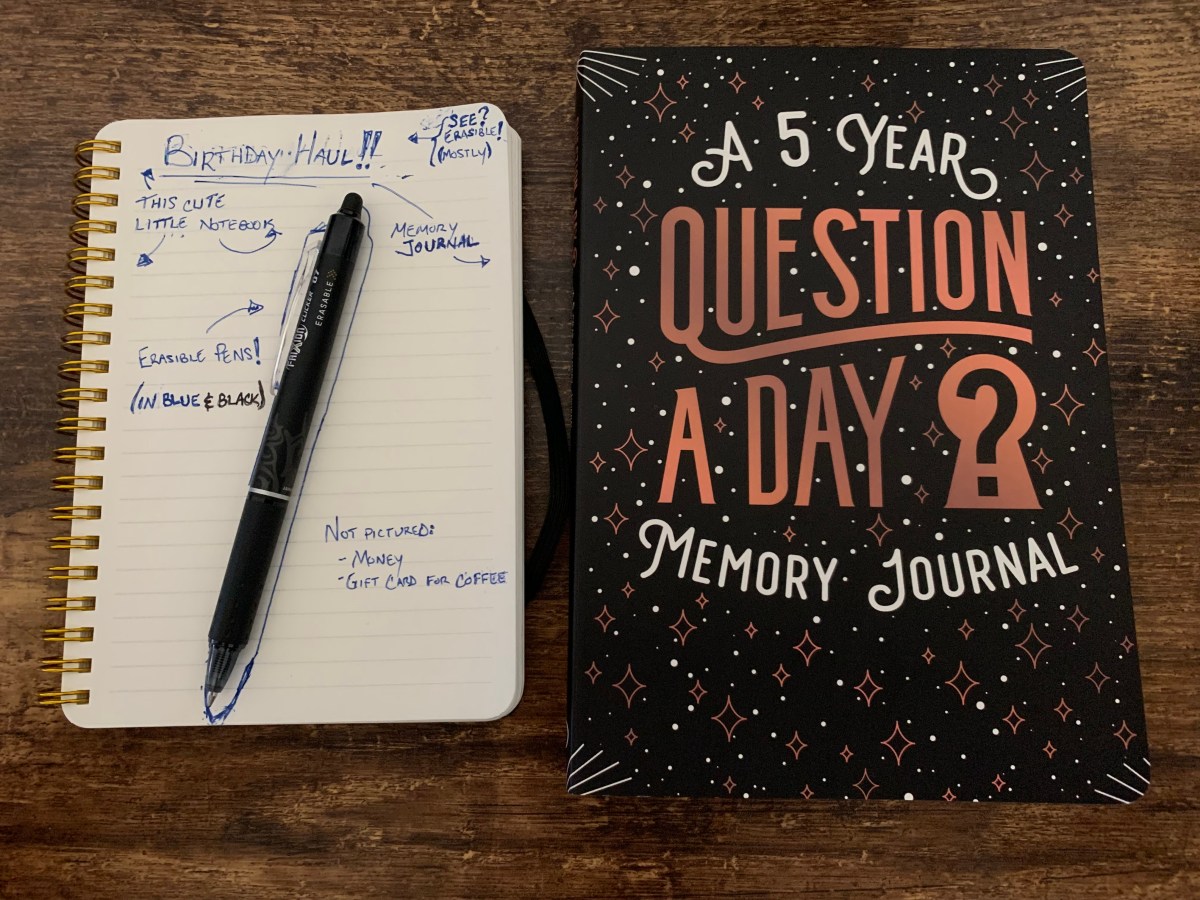 BIRTHDAY HAUL!!
SEE?
ERASIBLE!
(MOSTLY)
THIS CUTE
LITTLE NOTEBOOK
MEMORY
JOURNAL
ERASIBLE PENS!
(IN BLUE & BLACK)
FRIXION CLICKER 07
ERASABLE
NOT PICTURED:
- MONEY
- GIFT CARD FOR COFFEE
A 5 YEAR
QUESTION
A DAY ?
MEMORY JOURNAL